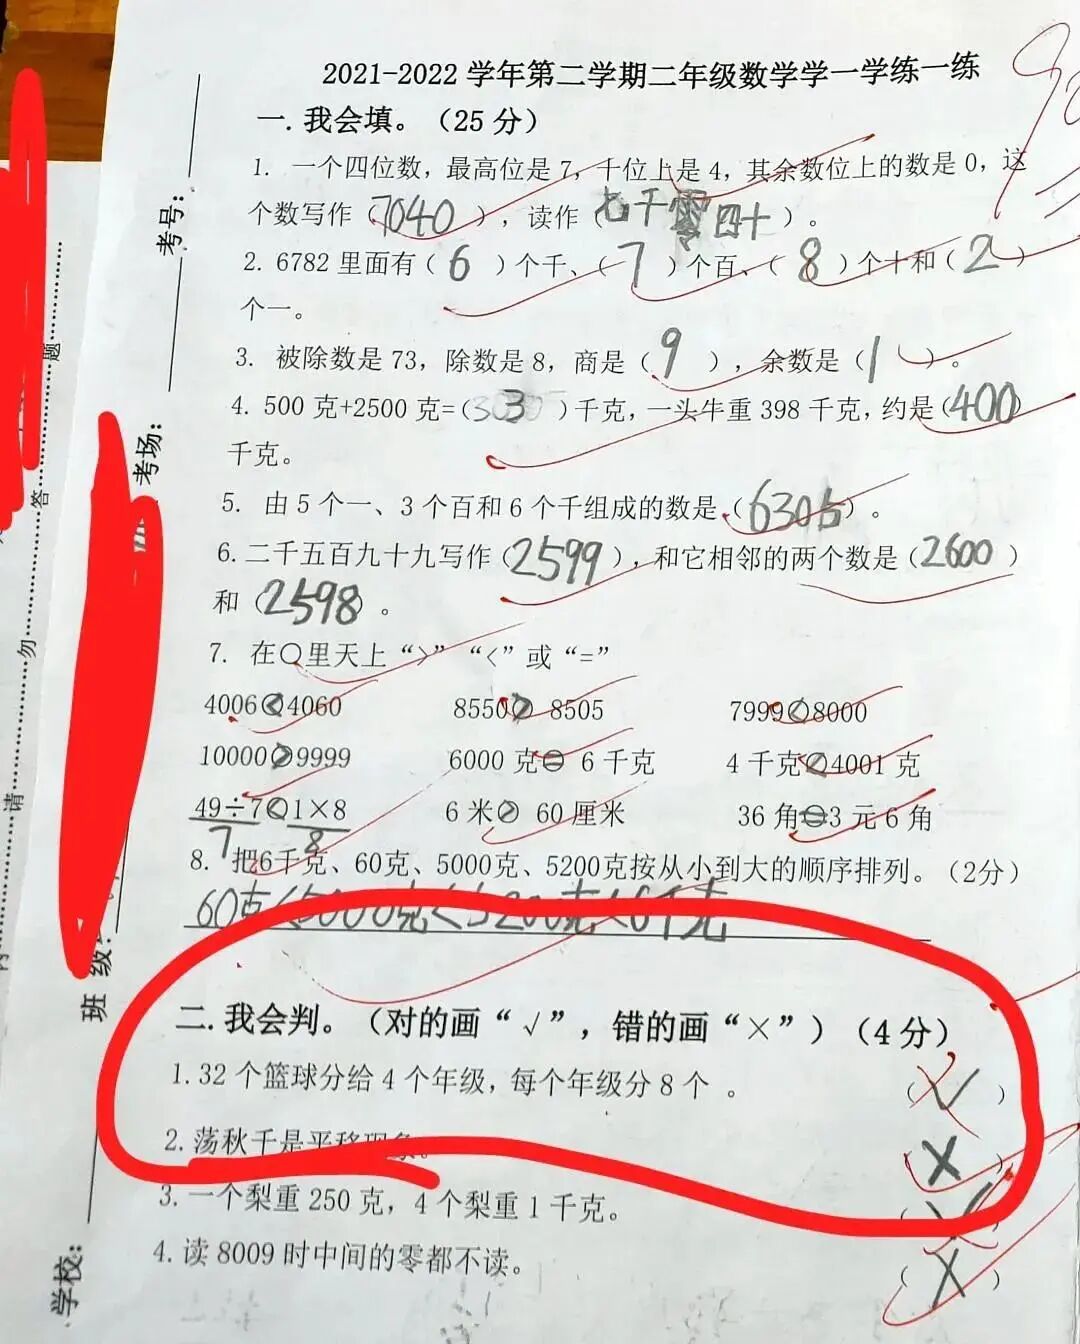 2021-2022 学年第二学期二年级数学学一学练一练
一. 我会填。（25 分）
1. 一个四位数，最高位是 7，千位上是 4，其余数位上的数是 0，这
个数写作（7040），读作（七千零四十）。
2. 6782 里面有（ 6 ）个千、（ 7 ）个百、（ 8 ）个十和（ 2 ）
个一。
3. 被除数是 73，除数是 8，商是（ 9 ），余数是（ 1 ）。
4. 500 克+2500 克=（ 3 ）千克，一头牛重 398 千克，约是（400）
千克。
5. 由 5 个一、3 个百和 6 个千组成的数是（6305）。
6.二千五百九十九写作（2599），和它相邻的两个数是（2600）
和（2598）。
7. 在○里天上“>”“<”或“=”
4006<4060 8550> 8505 7999<8000
10000>9999 6000 克= 6 千克 4 千克<4001 克
49÷7<1×8 6 米> 60 厘米 36 角=3 元 6 角
7 8
8. 把6千克、60克、5000克、5200克按从小到大的顺序排列。（2分）
60克<5000克<5200克<6千克
二.我会判。（对的画“√”，错的画“×”）（4 分）
1.32 个篮球分给 4 个年级，每个年级分 8 个 。 （√）
2.荡秋千是平移现象。 （×）
3.一个梨重 250 克，4 个梨重 1 千克。 （ ）
4.读 8009 时中间的零都不读。 （×）
考号：
考场：
班级：
学校：
题
答
勿
请
内